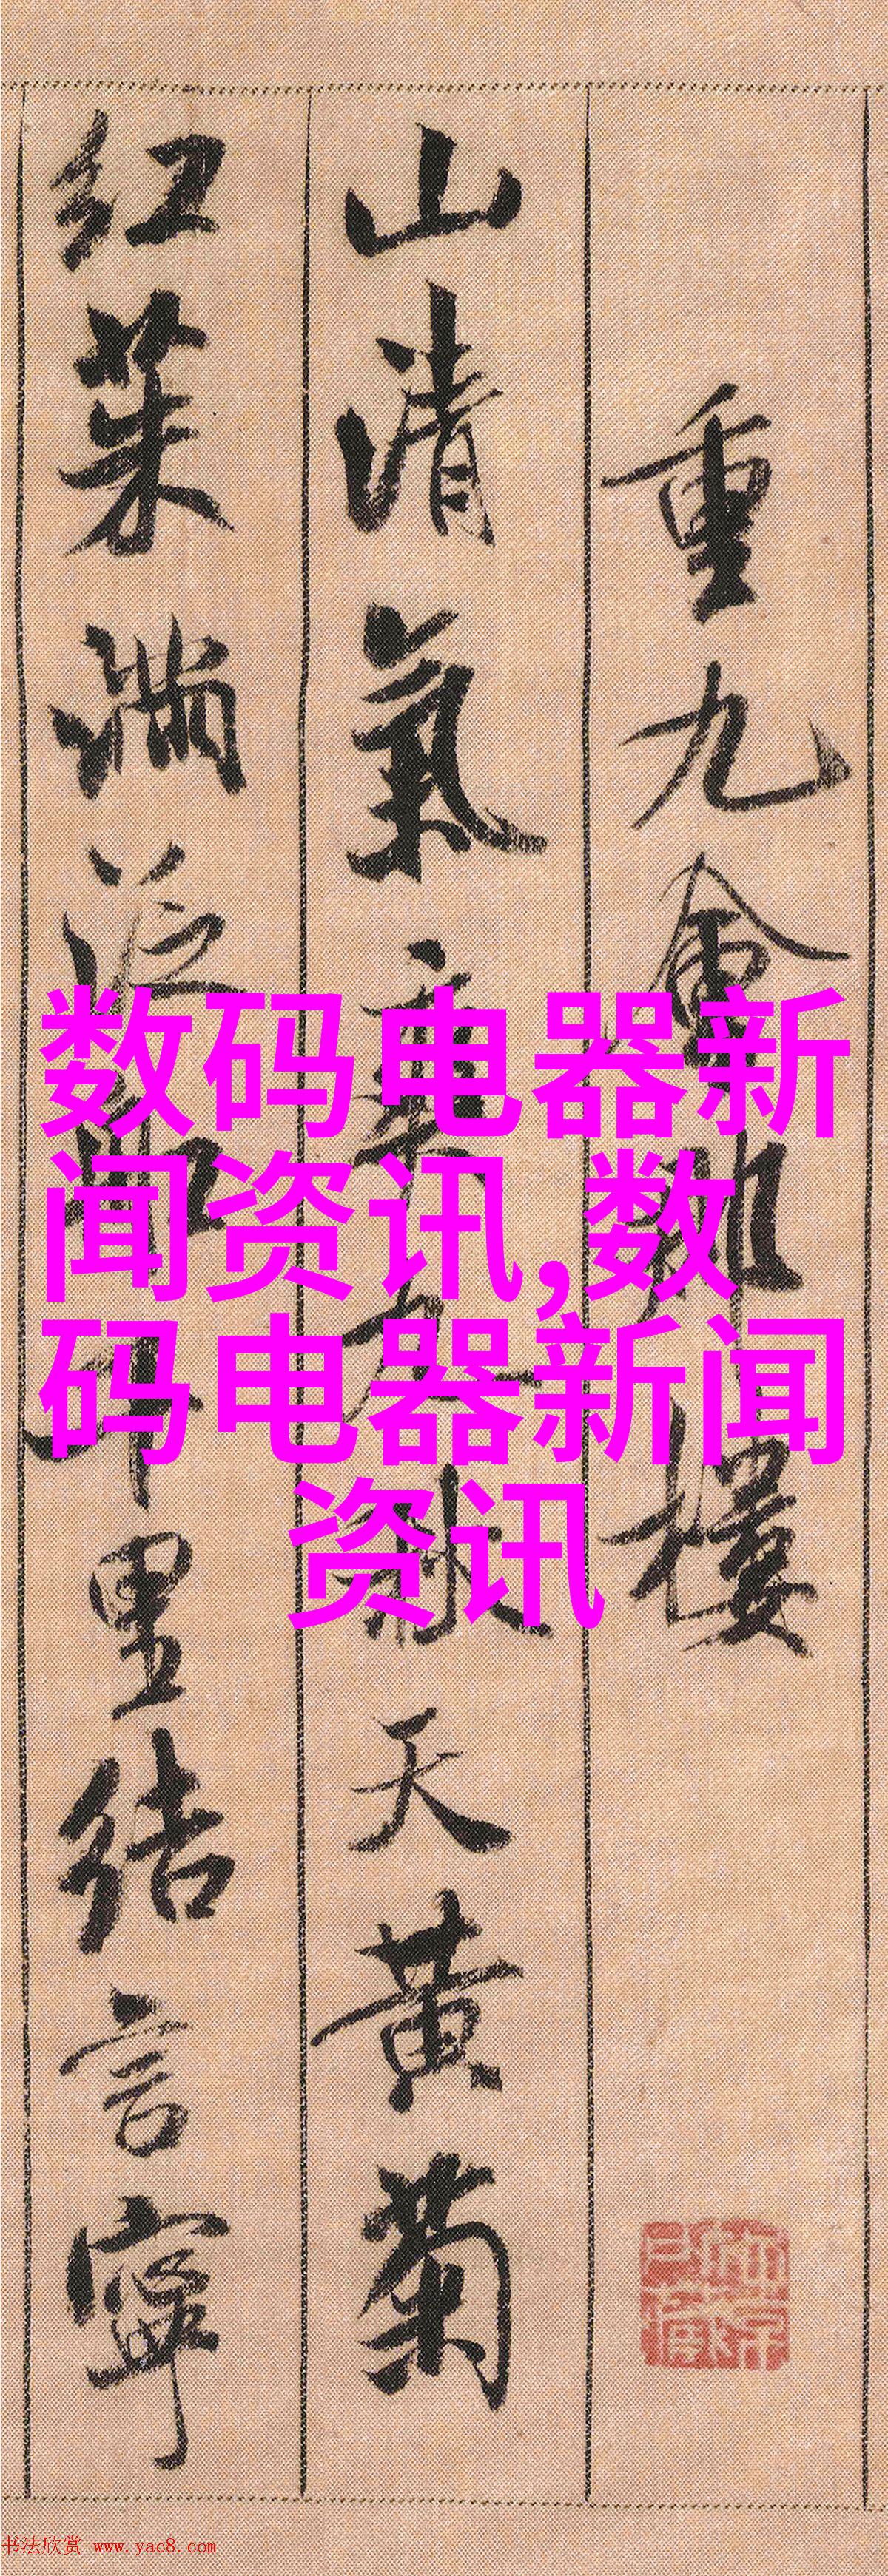 重九會郡樓
山清氣爽九秋天黃菊
紅茱滿泛船千里結言寧
数码电器新
闻资讯,数
码电器新闻
资讯
书法欣赏 www.yac8.com